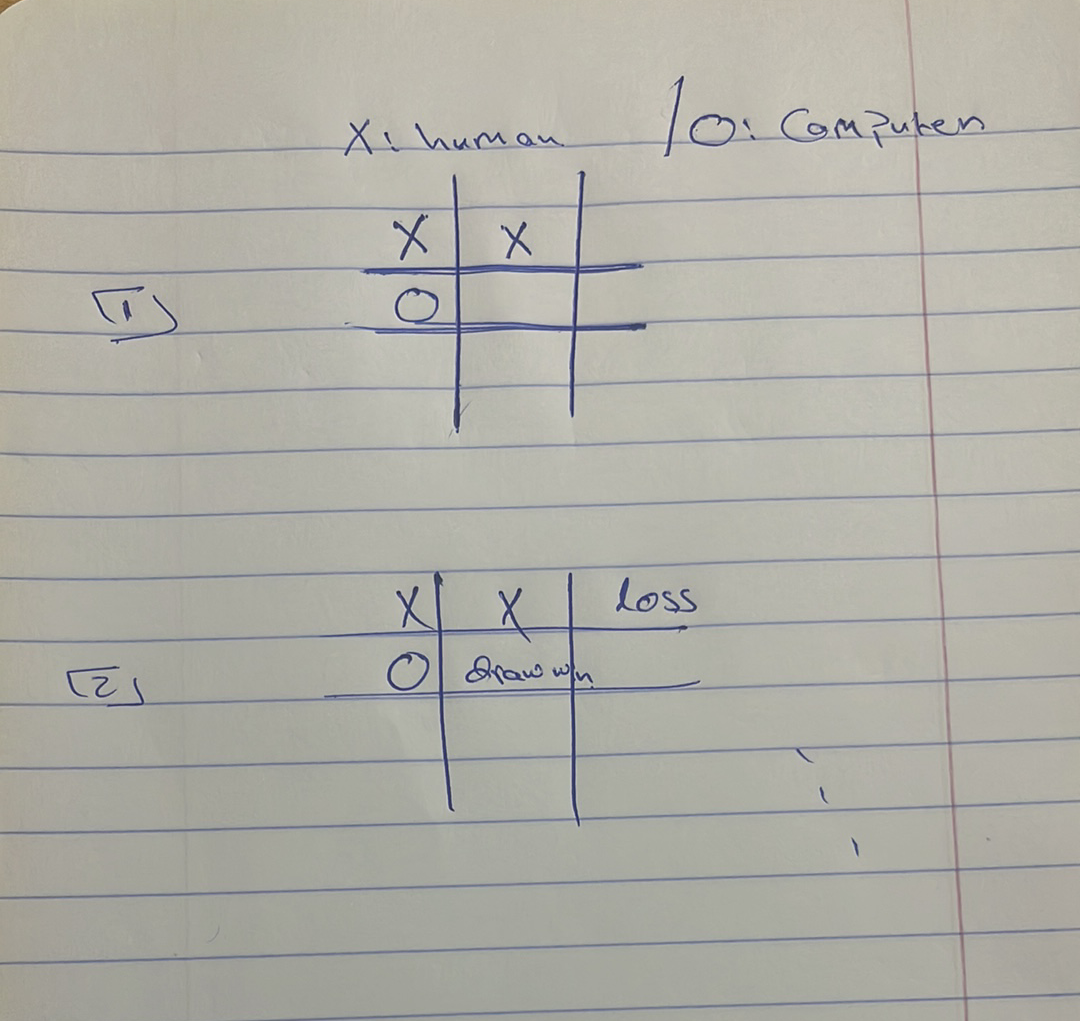 X: human / O: Computer
X X
[1] O
X X Loss
[2] O draw win